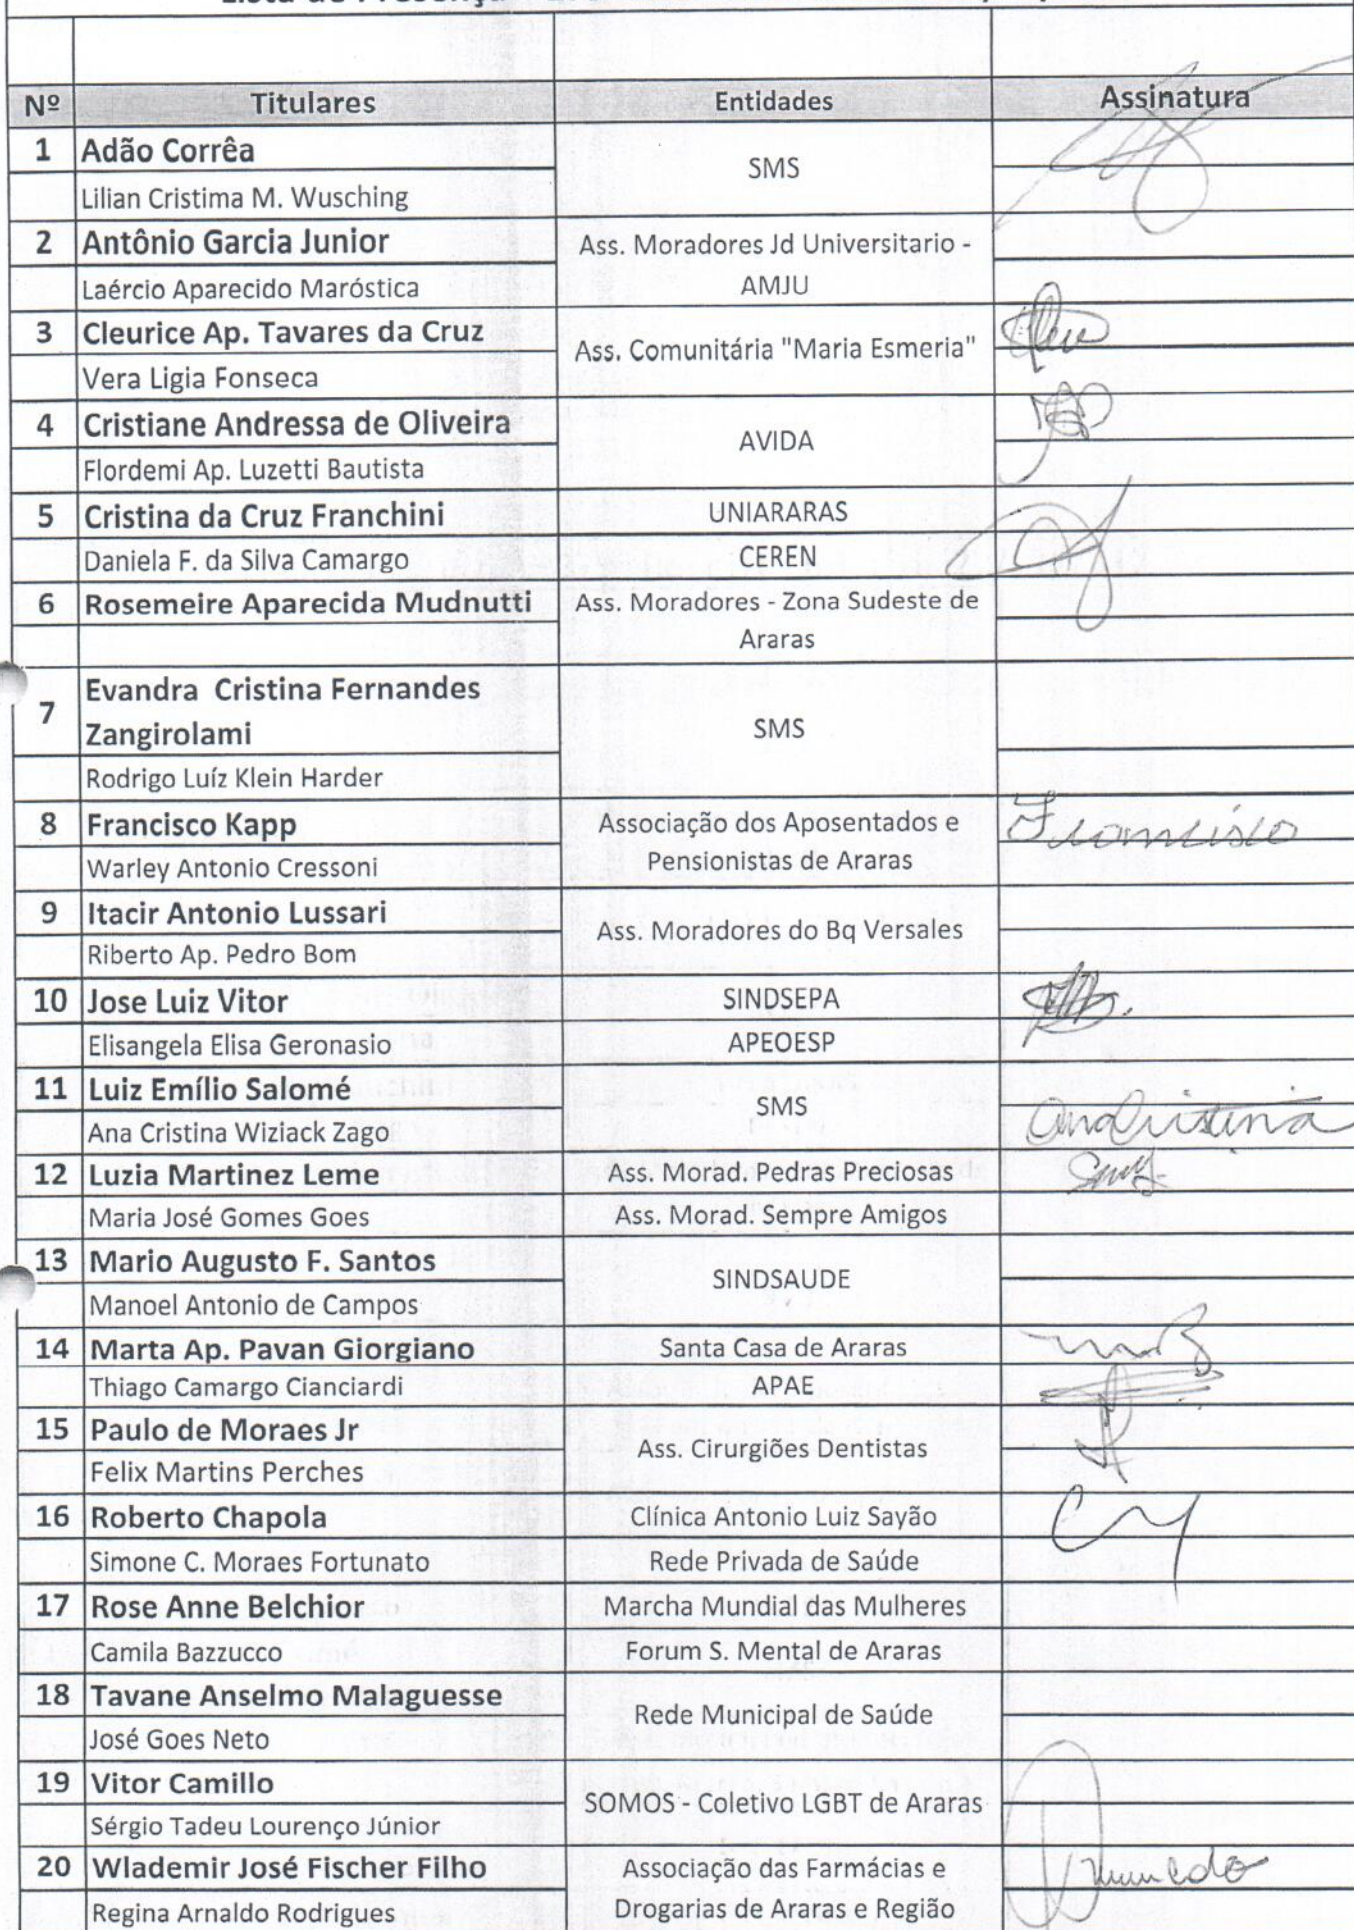 Nº Titulares Entidades Assinatura
1 Adão Corrêa SMS
Lilian Cristima M. Wusching
2 Antônio Garcia Junior Ass. Moradores Jd Universitario -
Laércio Aparecido Maróstica AMJU
3 Cleurice Ap. Tavares da Cruz Ass. Comunitária "Maria Esmeria"
Vera Ligia Fonseca
4 Cristiane Andressa de Oliveira AVIDA
Flordemi Ap. Luzetti Bautista
5 Cristina da Cruz Franchini UNIARARAS
Daniela F. da Silva Camargo CEREN
6 Rosemeire Aparecida Mudnutti Ass. Moradores - Zona Sudeste de
Araras
7 Evandra Cristina Fernandes
Zangirolami SMS
Rodrigo Luíz Klein Harder
8 Francisco Kapp Associação dos Aposentados e Francisco
Warley Antonio Cressoni Pensionistas de Araras
9 Itacir Antonio Lussari Ass. Moradores do Bq Versales
Riberto Ap. Pedro Bom
10 Jose Luiz Vitor SINDSEPA
Elisangela Elisa Geronasio APEOESP
11 Luiz Emílio Salomé SMS
Ana Cristina Wiziack Zago Ana Cristina
12 Luzia Martinez Leme Ass. Morad. Pedras Preciosas
Maria José Gomes Goes Ass. Morad. Sempre Amigos
13 Mario Augusto F. Santos SINDSAUDE
Manoel Antonio de Campos
14 Marta Ap. Pavan Giorgiano Santa Casa de Araras
Thiago Camargo Cianciardi APAE
15 Paulo de Moraes Jr Ass. Cirurgiões Dentistas
Felix Martins Perches
16 Roberto Chapola Clínica Antonio Luiz Sayão
Simone C. Moraes Fortunato Rede Privada de Saúde
17 Rose Anne Belchior Marcha Mundial das Mulheres
Camila Bazzucco Forum S. Mental de Araras
18 Tavane Anselmo Malaguesse Rede Municipal de Saúde
José Goes Neto
19 Vitor Camillo SOMOS - Coletivo LGBT de Araras
Sérgio Tadeu Lourenço Júnior
20 Wlademir José Fischer Filho Associação das Farmácias e
Regina Arnaldo Rodrigues Drogarias de Araras e Região